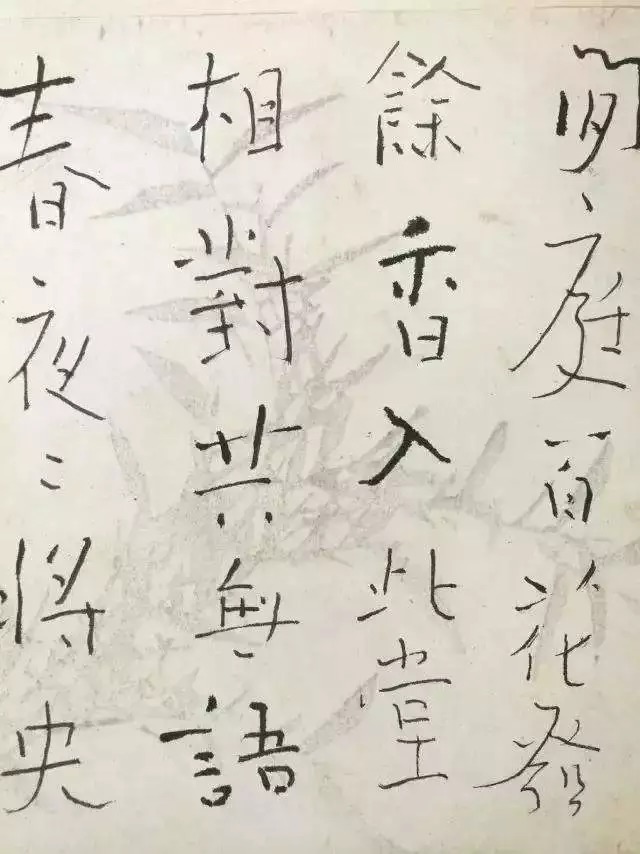 閒庭百花發
餘香入此堂
相對共無語
春夜〻將央